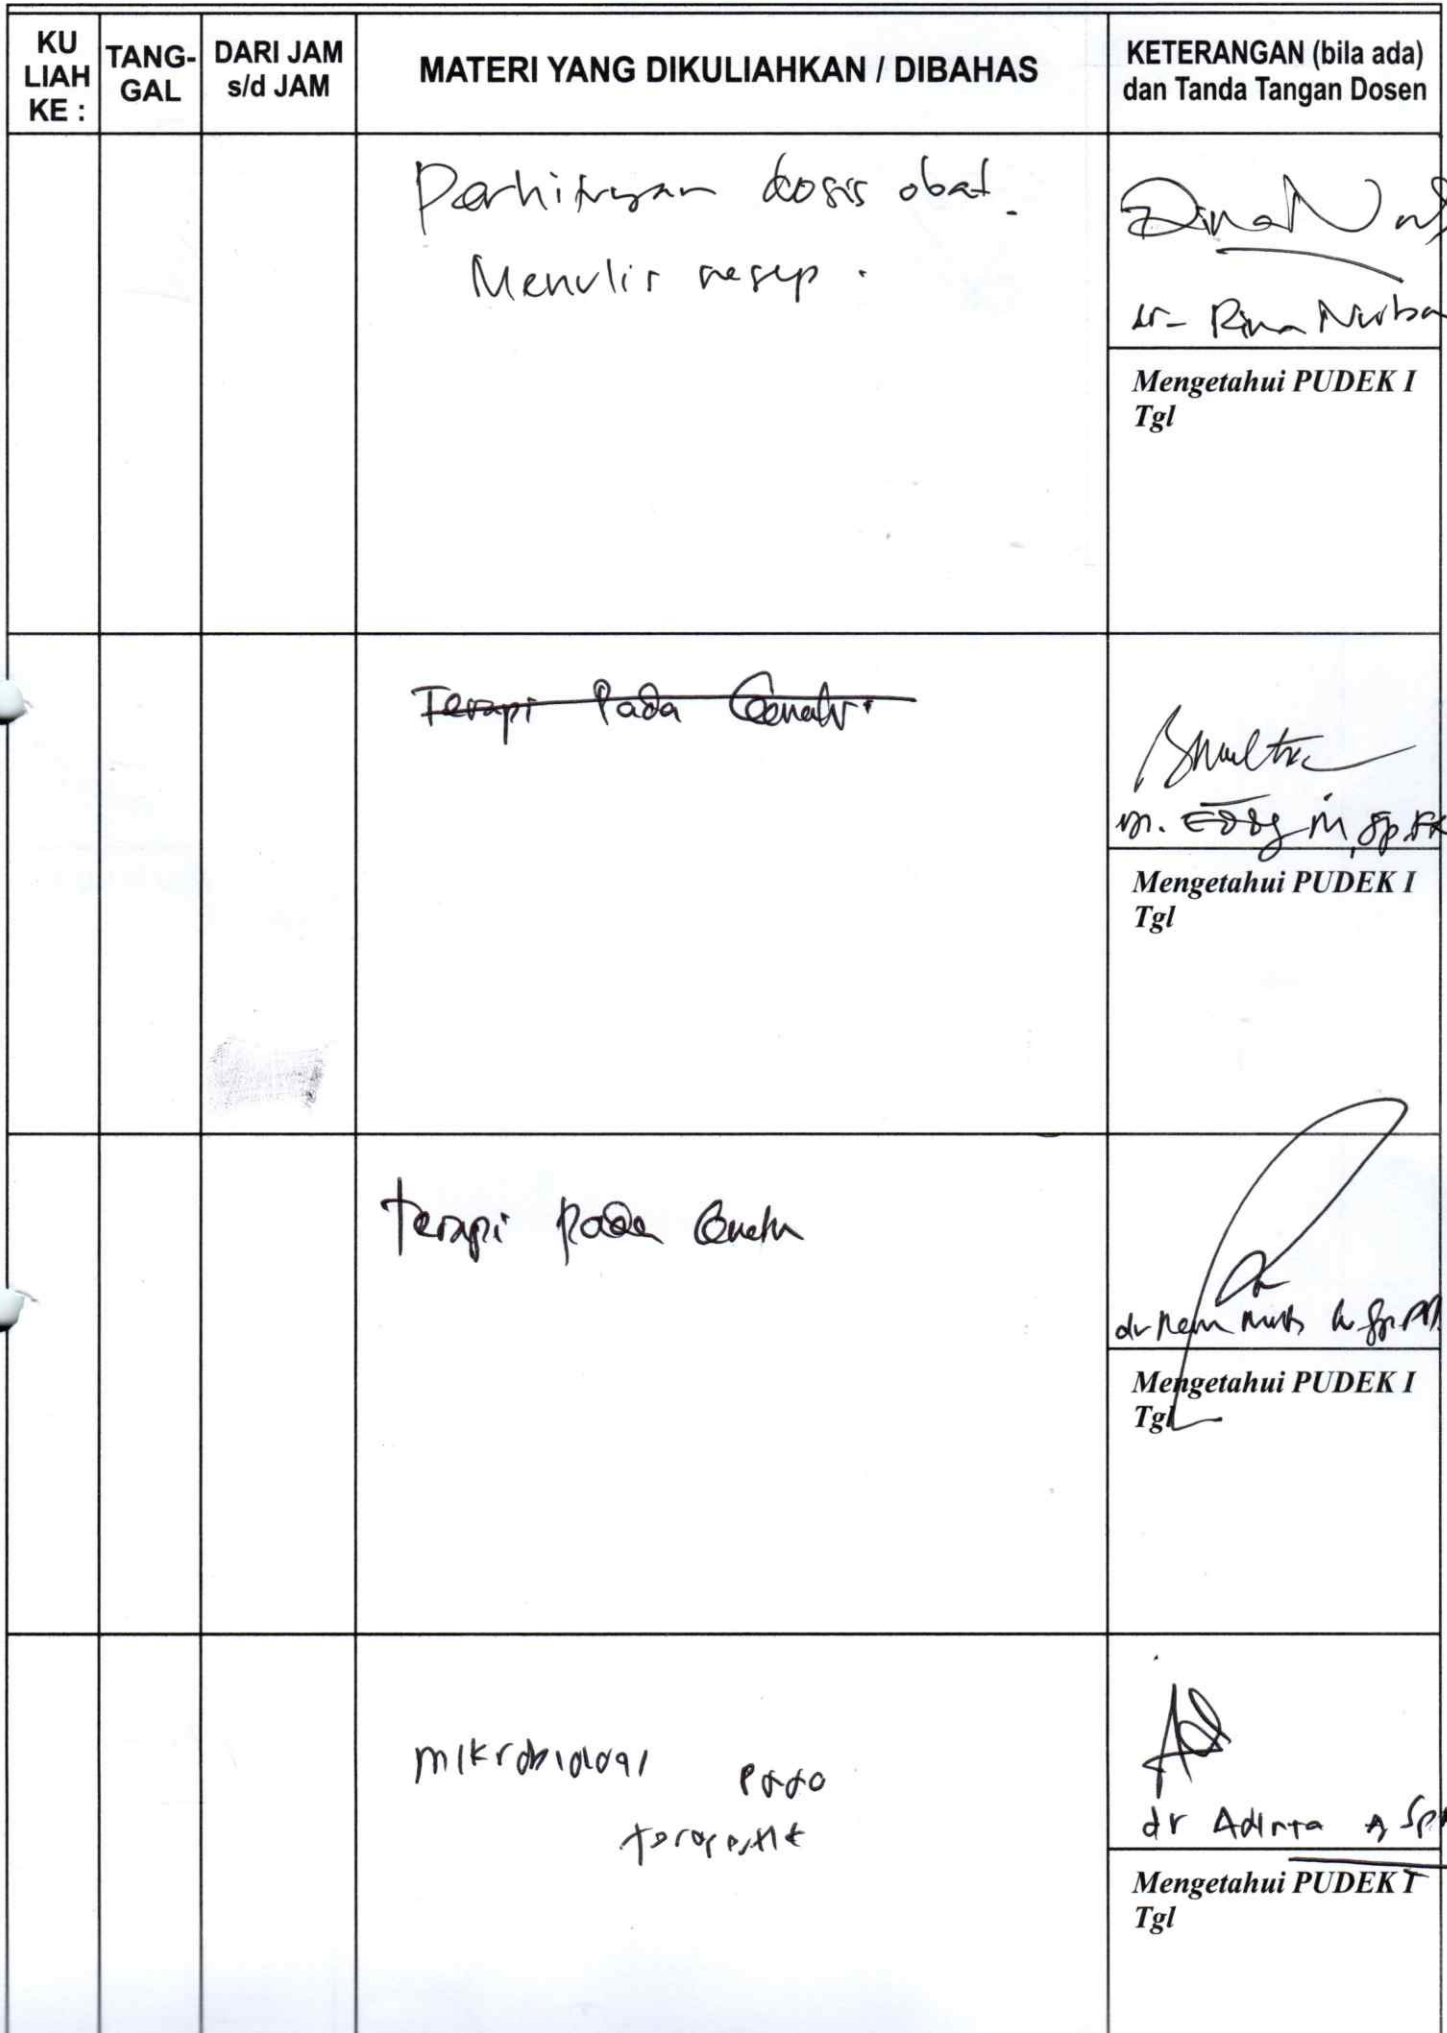 KU
LIAH
KE :
TANG-
GAL
DARI JAM
s/d JAM
MATERI YANG DIKULIAHKAN / DIBAHAS
KETERANGAN (bila ada)
dan Tanda Tangan Dosen
Perhitungan dosis obat.
Menulis resep.
dr. Rina Nurba
Mengetahui PUDEK I
Tgl
Terapi Pada
Mengetahui PUDEK I
Tgl
terapi pada
dr
Mengetahui PUDEK I
Tgl
mikrobiologi pada
dr
Mengetahui PUDEK I
Tgl